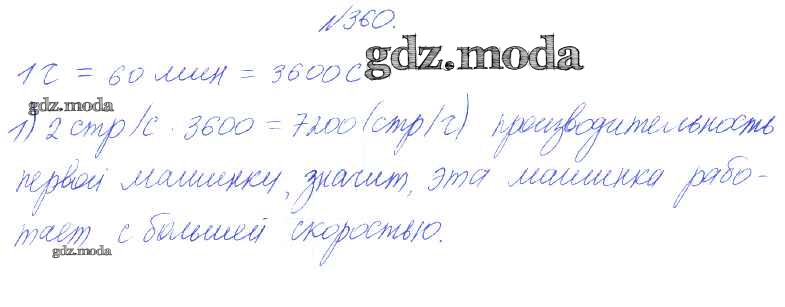 №360.
1 ч = 60 мин = 3600 с
gdz.moda
gdz.moda
1) 2 стр/с · 3600 = 7200 (стр/ч) производительность
первой машинки, значит, эта машинка рабо-
тает с большей скоростью.
gdz.moda